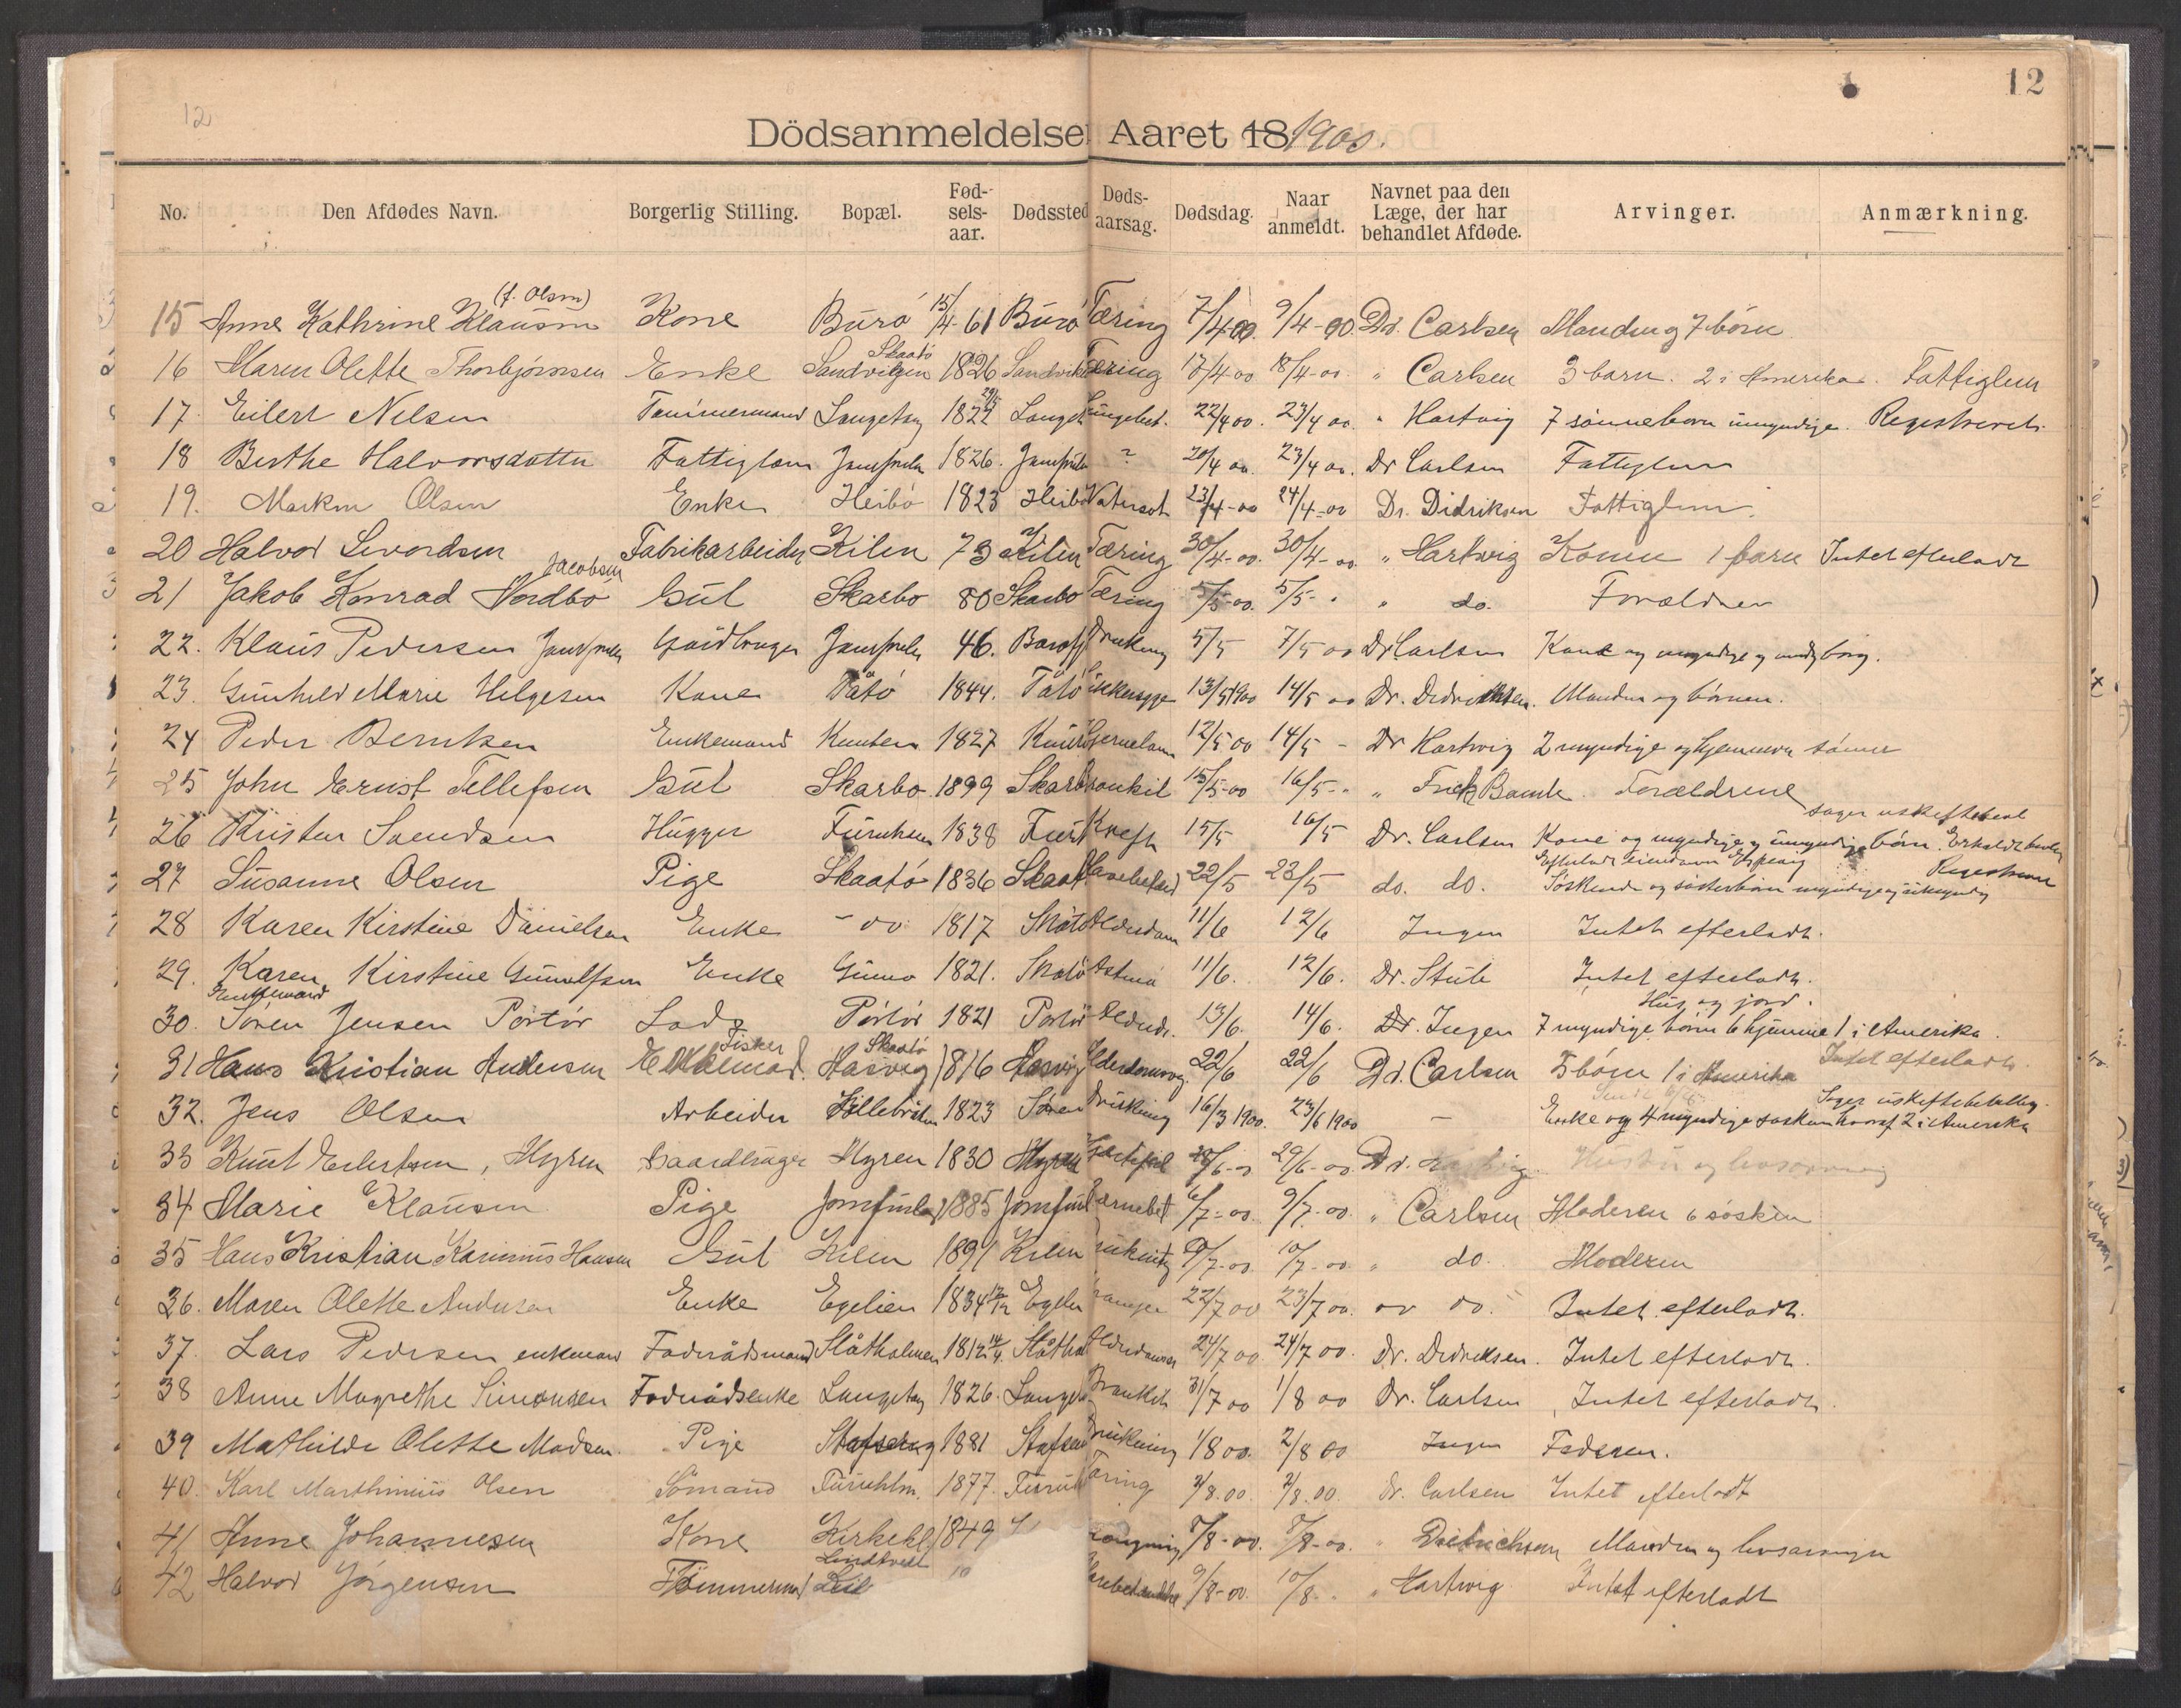 12
12
Dödsanmeldelse Aaret 18 1900.
No. Den Afdødes Navn. Borgerlig Stilling. Bopæl. Fødselsaar. Dødssted Dødsaarsag. Dødsdag. Naar anmeldt. Navnet paa den Læge, der har behandlet Afdøde. Arvinger. Anmærkning.
(f. Olsen)
15 Anne Kathrine Klausen Kone Burö 15/4-61 Burö Tæring 7/4-00. 9/4-00. Dr. Carlsen Manden og 7 börn
Skaatö
16 Maren Olette Thorbjörnsen Enke Sandvigen 1826 Sandvik Tæring 17/4-00 18/4-00. " Carlsen 3 barn. 2 i Amerika. Fattiglem
17. Eilert Nilsen Tømmermand Langetang 1822 Langet Lungebet. 22/4 00. 23/4 00. " Hartvig 7 sönnebørn umyndige. Registreret.
18 Berthe Halvorsdatter Fattiglem Jomfrul 1826. Jomfrul ? 20/4 00. 23/4 00. Dr Carlsen Fattiglem
19. Olsen Enke Heibö 1823 Heibö Vatersot 23/4-00 24/4-00 Dr. Didriksen Fattiglem.
20 Halvor Sivordsen Fabrikarbeider Kilen 73 Kilen Tæring 30/4-00. 30/4-00 " Hartwig Konen 1 barn Intet efterladt
Jacobsen
21 Jakob Konrad Nordbö Gut Skarbo 80 Skarbo Tæring 5/5-00. 5/5- " " do. Forældrer
22. Klaus Pedersen Jomfrul Gaardbruger Jomfrul 46. Drukning 5/5 7/5 00 Dr Carlsen Kone og myndige og
23. Gunhild Marie Helgesen Kone Tåtö 1844. Tåtö 13/5 1900 14/5 00 Dr. Didriksen. Manden og börnen.
24 Peder Berntsen Enkemand Knuten 1827 12/5 00 14/5 - Dr Hartvig 2 myndige og hjemmevær sönner
25 John Ernst Tellefsen Gut Skarbo 1899 Skarb Bronkit 15/5-00 16/5- " " Frick Bamle. Forældrene
26 Kristen Svendsen Hugger Furuholm 1838 Kreft 15/5 16/5 Dr. Carlsen Kone og myndige og umyndige börn.
27 Susanne Olsen Pige Skaatö 1836 Skaat 22/5 23/5 do. do. Söskende og sösterbörn myndige og umyndig
28 Karen Kirstine Danielsen Enke - do 1817 Skåtö Alderdom 11/6 12/6 Ingen Intet efterladt.
29. Karen Kirstine Gunulfsen Enke Gumö 1821. Skåtö Astma 11/6. 12/6. Dr. Stub Intet efterladt.
Enkemand Hus og jord.
30. Sören Jensen Portör Lods Portör 1821 Portör Alderd. 13/6. 14/6. Dr. Ingen 7 myndige börn 6 hjemme 1 i Amerika.
Fisker Skaatö
31 Hans Kristian Andersen Enkemand. Hasvig 1816 Hasvig Alderdomsvag. 22/6 22/6 Dr. Carlsen 5 börn 1 i Amerika Intet efterladt.
32. Jens Olsen Arbeider 1823 Drukning 16/3 1900. 23/6 1900 - Enke og 4 myndige söskenhvoraf 2 i Amerika
33 Knut Eilertsen, Hyren Gaardbruger Hyren 1830 Hyren Hjertefeil 28/6-00 29/6-00 Dr. Hustru og livsarving
34 Marie Klausen Pige Jomfrulag 1885 Jomfrul 6/7-00. 9/7-00. " Carlsen Moderen 6 sösken
35 Hans Kristian Karinius Hansen Gut Kilen 1891 Kilen Drukning 9/7-00 10/7-00. " do. Moderen
36. Maren Olette Andersen Enke Egelien 1834 Egelien 22/7 00 23/7 00. do do. Intet efterladt.
37. Lars Pedersen enkemand Foderådsmand Slåtholmen 1812 14/4. Slåthol Alderdoms 24/7 00. 24/7 00. Dr. Didriksen. Intet efterladt.
38 Anne Magrethe Simonsen Foderådsenke Langetang 1826. Langet Bronkit 31/7 00 1/8 00 Dr. Carlsen Intet efterladt.
39 Mathilde Olette Madsen. Pige Stafseng 1881 Stafsen Drukning 1/8 00. 2/8 00 Ingen Faderen.
40. Karl Marthinius Olsen Sömand Furuhlm. 1877. Furuh Tæring 2/8.00. 2/8.00. Dr. Carlsen Intet efterladt
41 Anne Johannesen Kone Kirkebl 1849 7/8-00. 8/8-00. " Diedrichsen Manden og livsarvinger
Lindtveit
42 Halvor Jörgensen Tömmermand 9/8-00. 10/8. " " Hartwig Intet efterladt